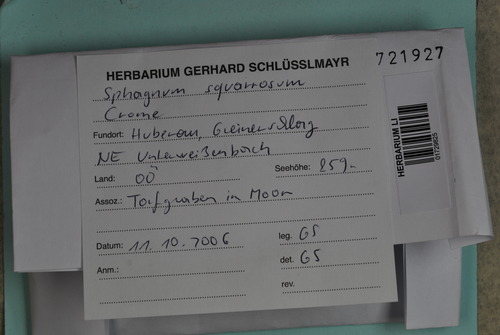 HERBARIUM GERHARD SCHLÜSSLMAYR
721927
Sphagnum squarrosum
Crome
Fundort: Huberau,
NE Unterweißenbach
Land: OÖ Seehöhe: 859.-
Assoz.: Torfgraben in Moor
Datum: 11.10.2006 leg. GS
Anm.: det. GS
rev.
HERBARIUM LI